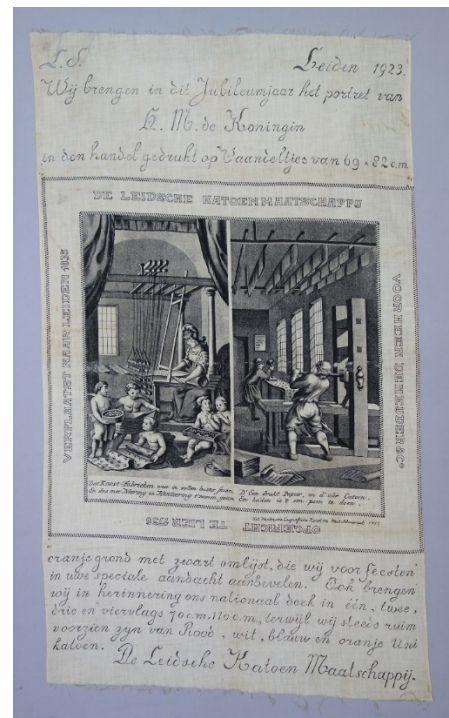 L.S. Leiden 1923.
Wij brengen in dit Jubileumjaar het portret van
H. M. de Koningin
in den handel gedrukt op Vaandeltjes van 69 × 82 c.m
DE LEIDSCHE KATOENMAATSCHAPPIJ
VOORHEEN DE HEYDER & Co
OPGERICHT TE LIER 1756
VERPLAATST NAAR LEIDEN 1835
Dus Konst-Fabrieken
D' Een drukt Papier, en d' aêr Catoen,
En beiden is 't om
oranje grond met zwart omlijst, die wij voor feesten
in uwe speciale aandacht aanbevelen. Ook brengen
wij in herinnering ons nationaal doek in één, twee,
drie en viervlags 70 c.m. 110 c.m., terwijl wij steeds ruim
voorzien zyn van Rood, wit, blauw en oranje Uni
katoen. De Leidsche Katoen Maatschappij.